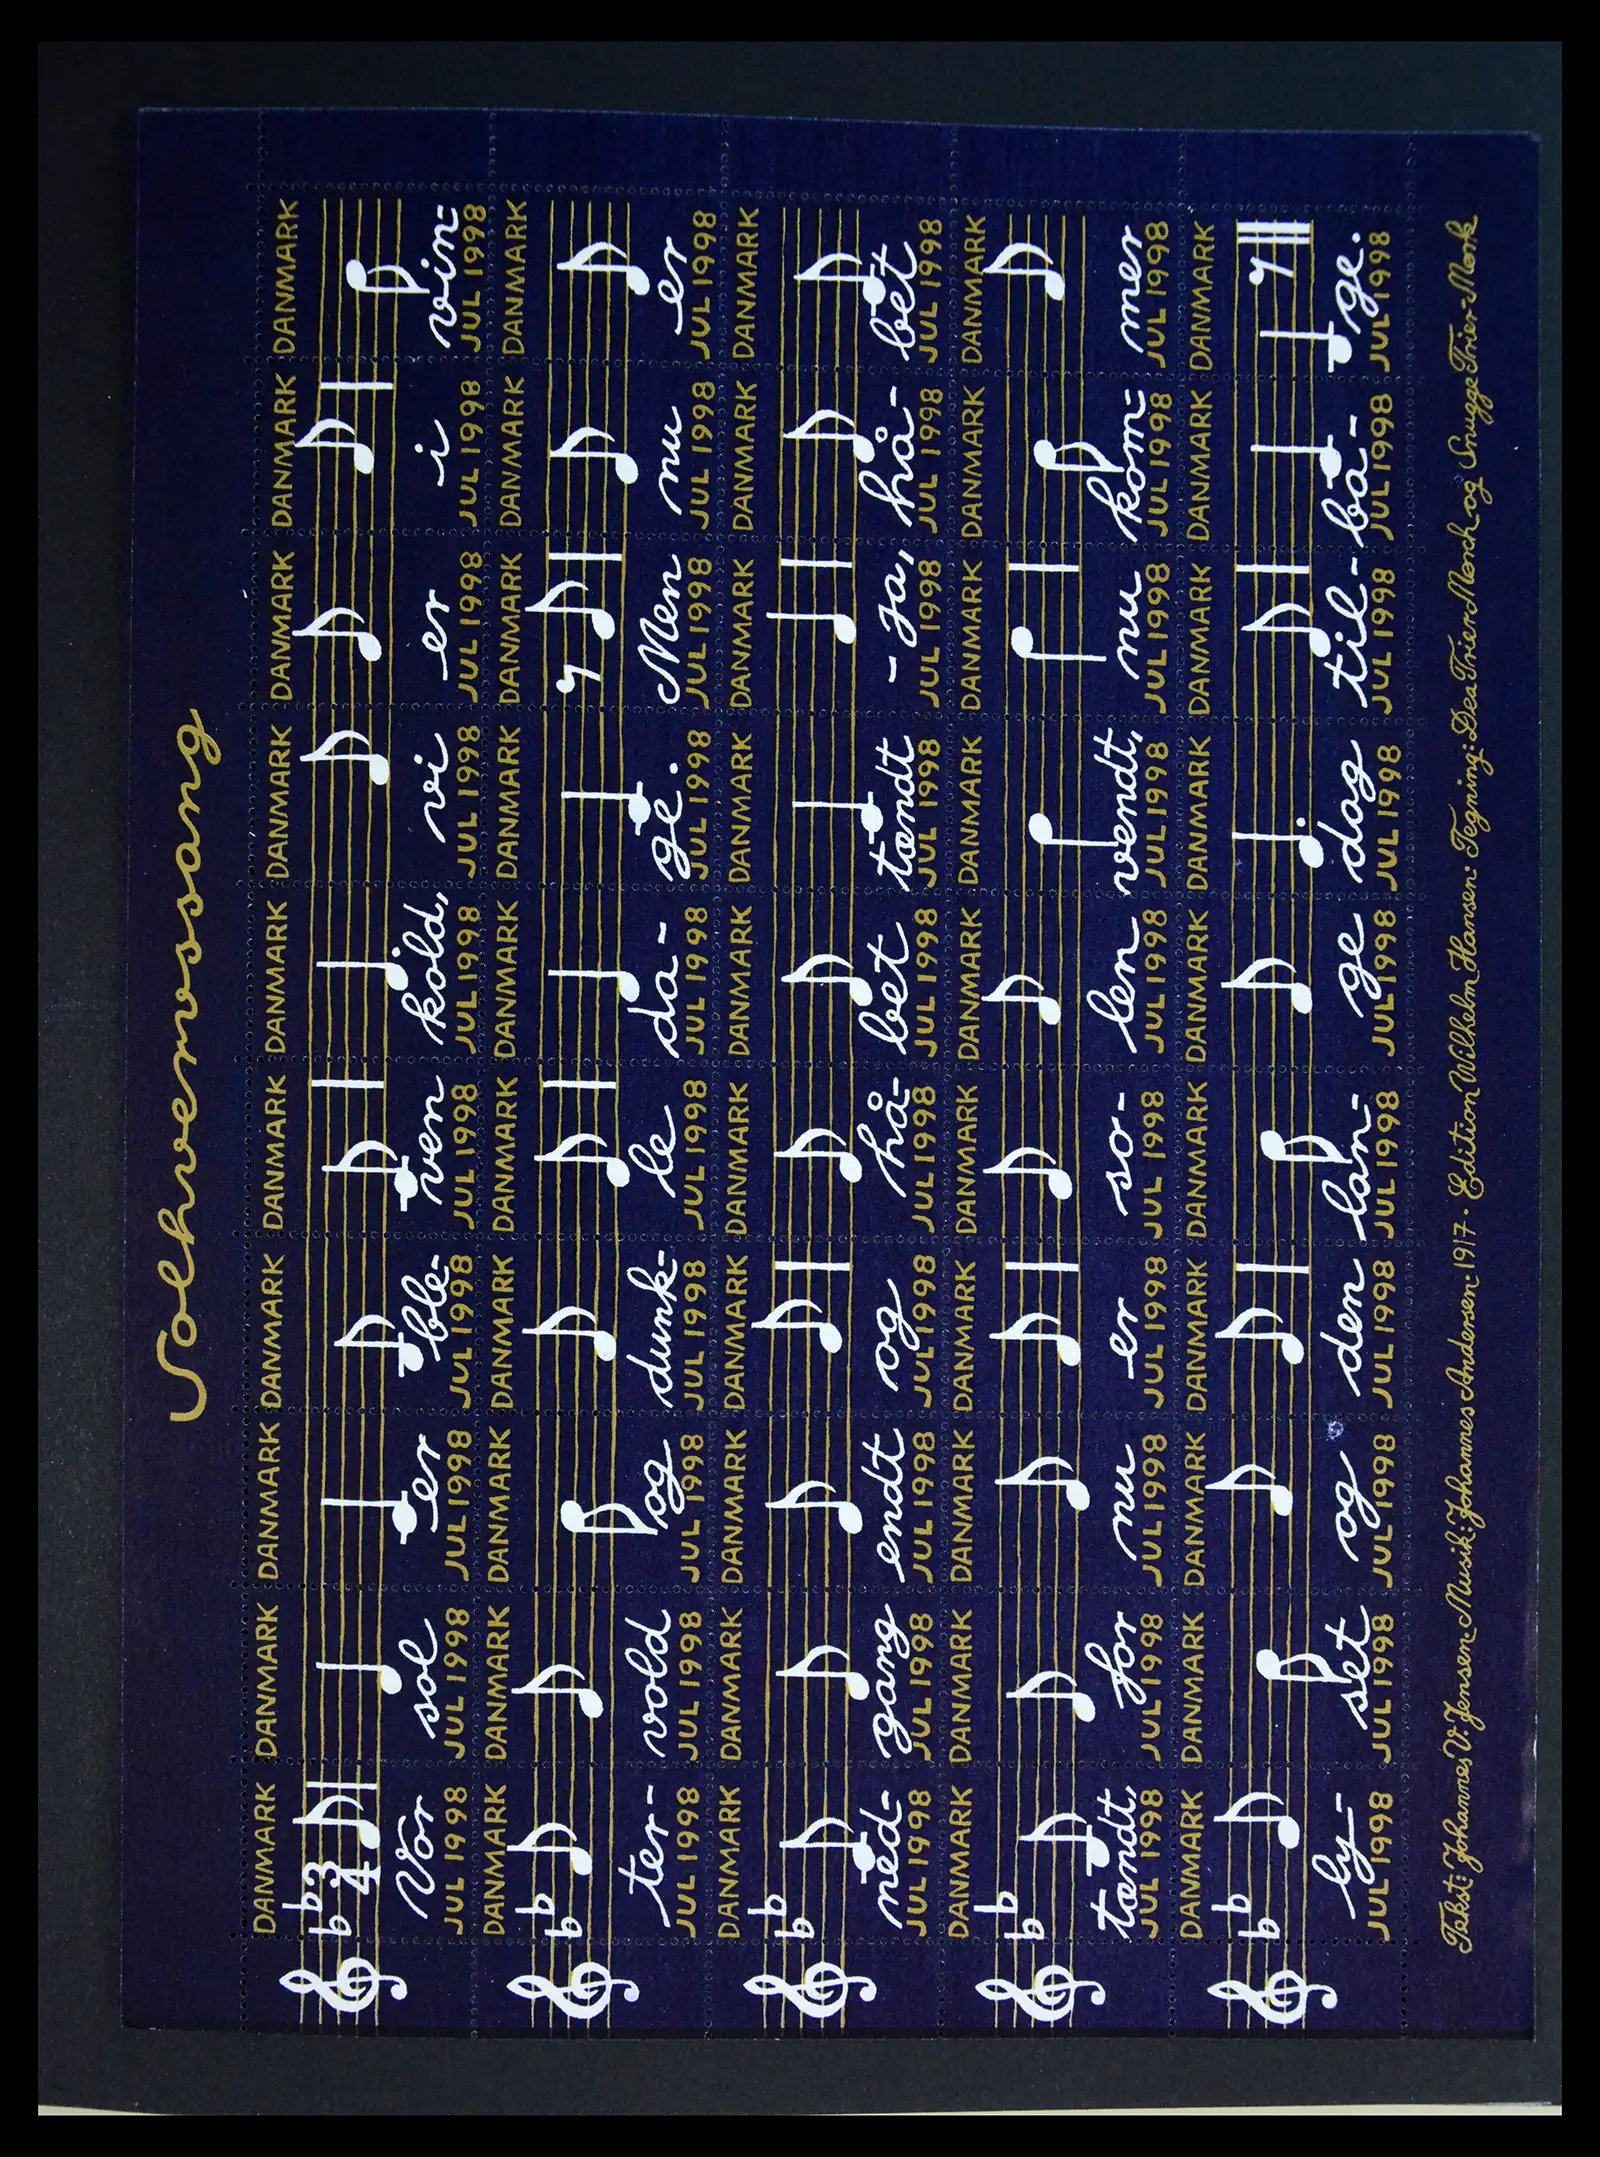 Solhvervssang
DANMARK DANMARK DANMARK DANMARK DANMARK DANMARK DANMARK DANMARK DANMARK DANMARK
3
4
Vor sol er ble- ven kold, vi er i vin=
JUL 1998 JUL 1998 JUL 1998 JUL 1998 JUL 1998 JUL 1998 JUL 1998 JUL 1998 JUL 1998 JUL 1998
DANMARK DANMARK DANMARK DANMARK DANMARK DANMARK DANMARK DANMARK DANMARK DANMARK
ter- vold og dunk= le da- ge. Men nu er
JUL 1998 JUL 1998 JUL 1998 JUL 1998 JUL 1998 JUL 1998 JUL 1998 JUL 1998 JUL 1998 JUL 1998
DANMARK DANMARK DANMARK DANMARK DANMARK DANMARK DANMARK DANMARK DANMARK DANMARK
ned= gang endt og hå- bet tændt - ja, hå- bet
JUL 1998 JUL 1998 JUL 1998 JUL 1998 JUL 1998 JUL 1998 JUL 1998 JUL 1998 JUL 1998 JUL 1998
DANMARK DANMARK DANMARK DANMARK DANMARK DANMARK DANMARK DANMARK DANMARK DANMARK
tændt, for nu er so- len vendt, nu kom= mer
JUL 1998 JUL 1998 JUL 1998 JUL 1998 JUL 1998 JUL 1998 JUL 1998 JUL 1998 JUL 1998 JUL 1998
DANMARK DANMARK DANMARK DANMARK DANMARK DANMARK DANMARK DANMARK DANMARK DANMARK
ly= set og den lan= ge dag til- ba- ge.
JUL 1998 JUL 1998 JUL 1998 JUL 1998 JUL 1998 JUL 1998 JUL 1998 JUL 1998 JUL 1998 JUL 1998
Tekst: Johannes V. Jensen · Musik: Johannes Andersen 1917 · Edition Wilhelm Hansen · Tegning: Dea Trier Mørch og Snugge Trier Mørk